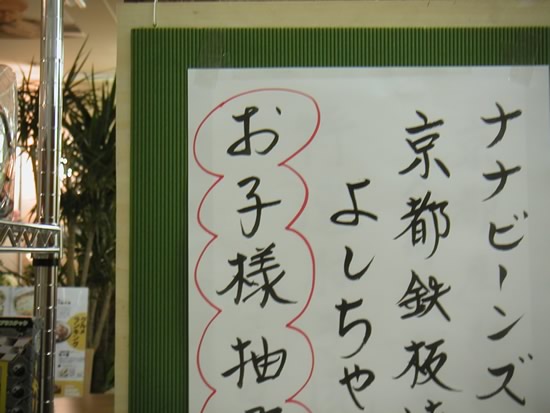 ナナビーンズ
京都鉄板
よしちゃ
お子様抽